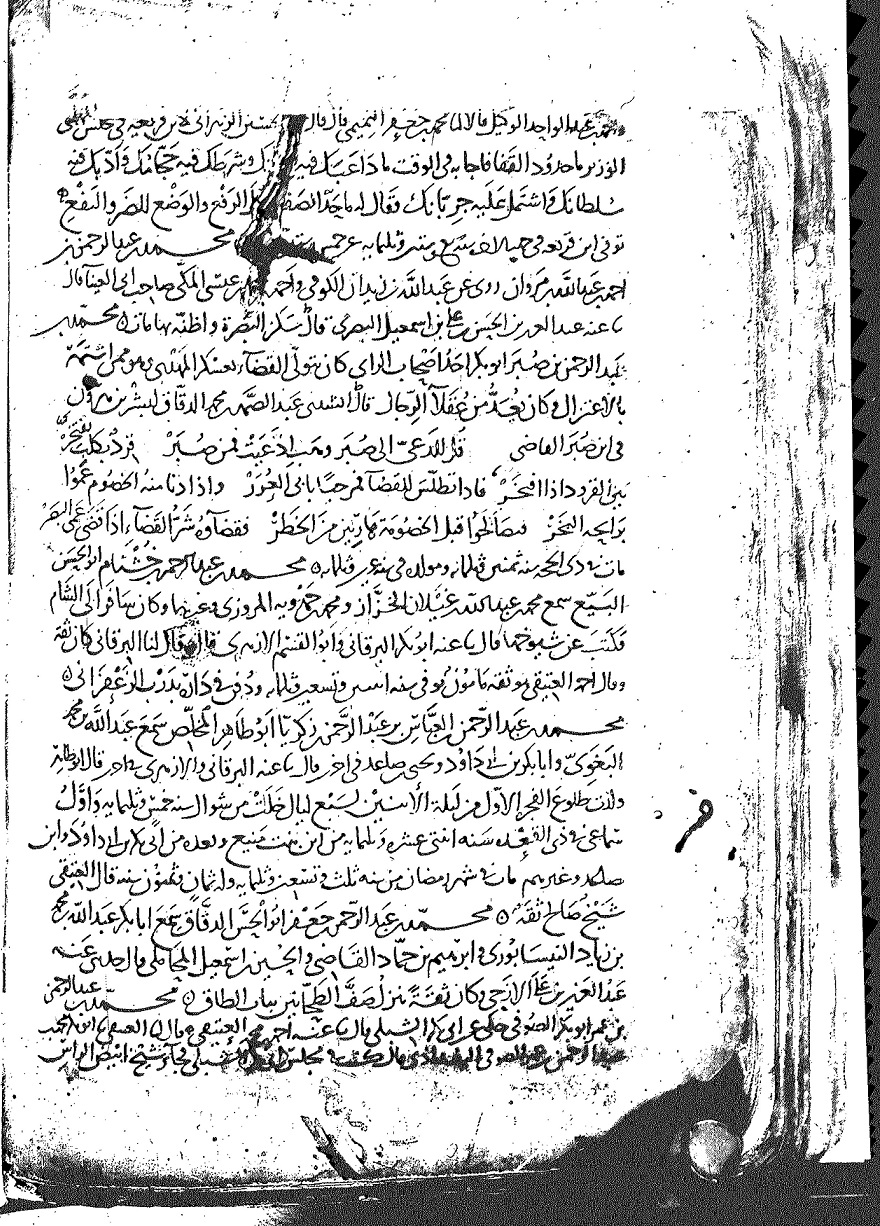 محمد بن عبد الواحد الوكيل قالا انا محمد بن جعفر التميمي قال قال
الوزير ما حدود القفا فاجابه في الوقت ما داعبك فيه وشرطك فيه حجامك وادبك فيه
سلطانك واشتمل عليه جربانك فقال له ما حد الصفع الرفع والوضع للضر والنفع
توفي ابن قريعة في سنة سبع وستين وثلثمايه محمد بن عبد الرحمن بن
احمد بن عبد الله بن مروان روى عن عبد الله بن زيدان الكوفي واحمد بن عيسى المكي صاحب ابي العينا قال
نا عنه عبد العزيز بن الحسن بن علي بن اسمعيل البصري قال سكن البصرة واظنه بها مات محمد بن
عبد الرحمن بن صبر ابو بكر احد اصحاب الراى كان يتولى القضاء بعسكر المهدي وهو ممن اشتهر
بالاعتزال وكان يعد من عقلاء الرجال قال انشدني عبد الصمد بن محمد الدقاق لبشر بن هرون
في ابن صبر القاضي قل للدعي الى صبر وهب ادعيت فمن صبر
بين القرود اذا افتخر فاذا تطلس للقضا فمرحبا بابي العبر واذا دنا منه الخصوم عموا
برايحه البخر فتصالحوا قبل الخصومة هاربين من الخطر فقضاؤه شر القضاء اذا قضى عمي البصر
مات في ذي الحجه سنه ثمنين وثلثمايه ومولده في سنه عشرين وثلثمايه محمد بن عبد الرحمن بن خشنام ابو الحسن
البيع سمع محمد بن عبيد الله بن غيلان الخزاز ومحمد بن حمدويه المروزي وغيرهما وكان سافر الى الشام
فكتب عن شيوخها قال نا عنه ابو بكر البرقاني وابو القسم الازهري قال وقال لنا البرقاني كان ثقه
وقال احمد العتيقي هو ثقه مامون توفي في سنه وتسعين وثلثمايه ودفن في داره بدرب الزعفراني
محمد بن عبد الرحمن بن العباس بن عبد الرحمن بن زكريا ابو طاهر المخلص سمع عبد الله بن محمد
البغوي وابا بكر بن ابي داود ويحيى بن صاعد في اخرين قال نا عنه البرقاني والازهري في اخرين قال ابو طاهر
ولدت طلوع الفجر الاول من ليلة الاثنين لسبع ليال خلت من شوال سنه خمس وثلثمايه واول
سماعي في ذي القعده سنه اثنتي عشره وثلثمايه من ابن بنت منيع وبعده من ابي بكر بن ابي داود وابن
صاعد وغيرهم مات في شهر رمضان من سنه ثلث وتسعين وثلثمايه وله ثمان وثمنون سنه قال العتيقي
شيخ صالح ثقه محمد بن عبد الرحمن بن جعفر ابو الحسن الدقاق سمع ابا بكر عبد الله بن محمد
بن زياد النيسابوري وابرهيم بن حماد القاضي والحسين بن اسمعيل المحاملي قال حدثني عنه
عبد العزيز بن علي الازجي وكان ثقة ينزل صف الطحانين بباب الطاق محمد بن عبد الرحمن
بن عمر ابو بكر الصوفي حكى عن ابي بكر الشبلي قال نا عنه احمد بن محمد العتيقي قال انا العتيقي انا ابو بكر محمد
بن عبد الرحمن بن عمر الصوفي البغدادي قال كنت في مجلس ابي بكر الشبلي فجاء شيخ ابيض الراس